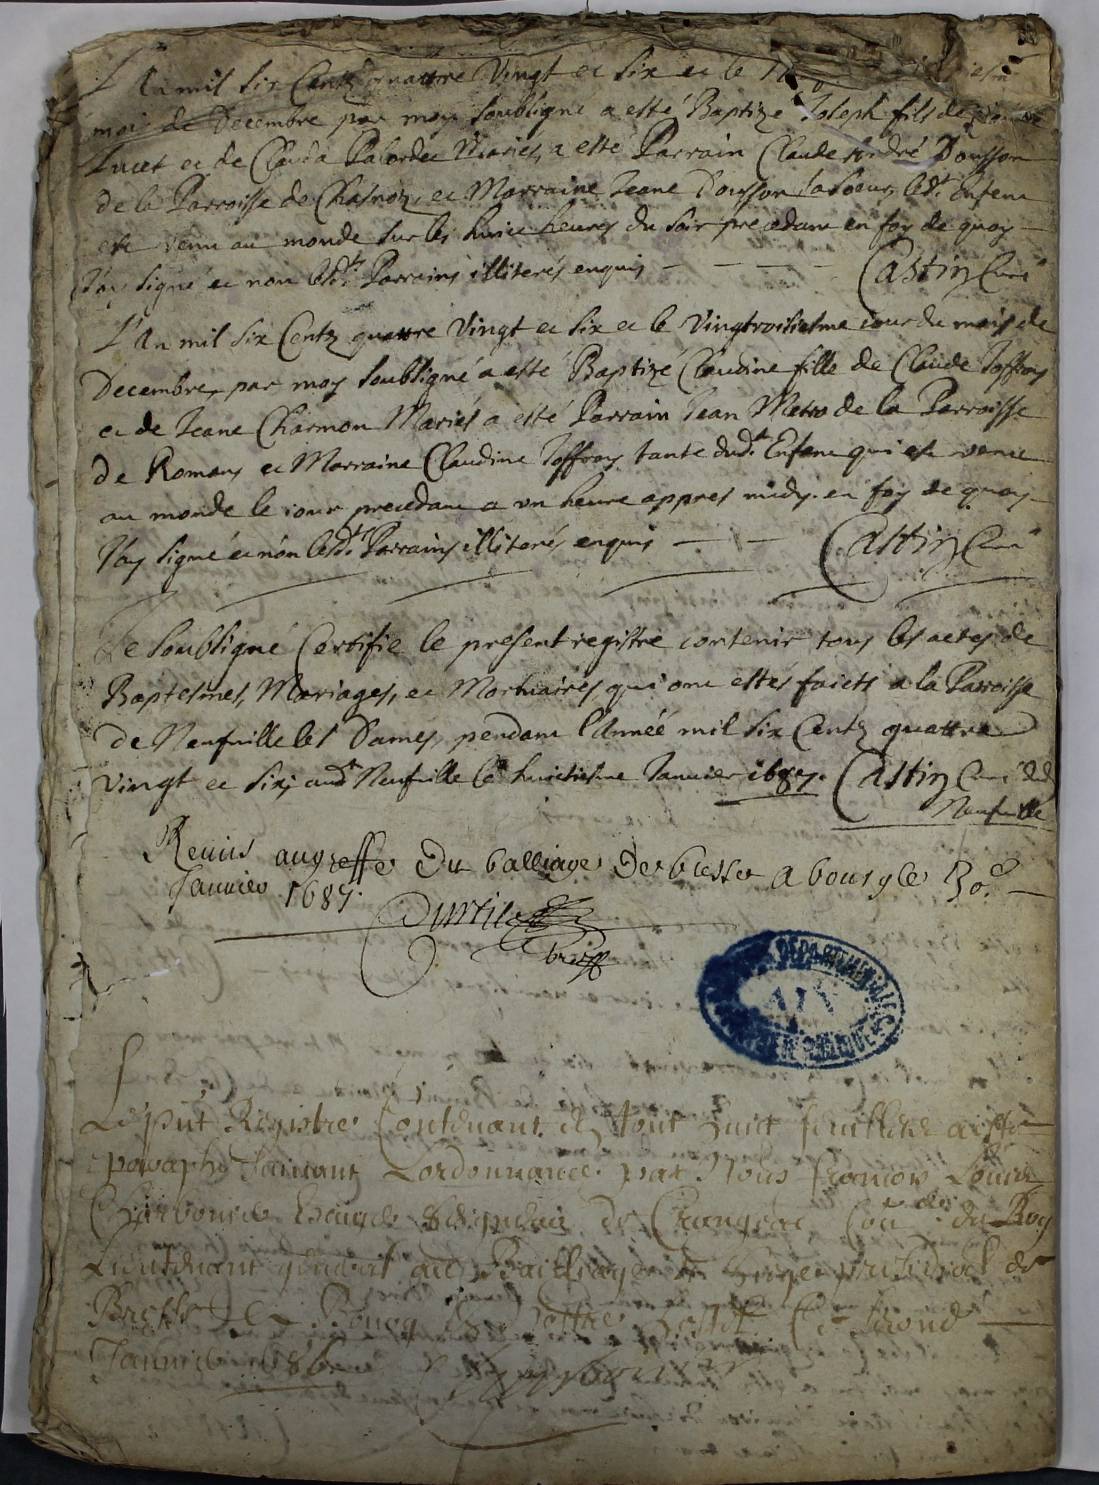 L'An mil six Centz quattre Vingt et six et le
mois de Decembre par moy soubsigné a esté Baptizé Joseph fils de
et de Clauda Mariés, a esté Parrain Claude André Dousson
de la Parroisse de Chasnoz, et Marraine Jeane Dousson sa soeur, led.t Enfant
est venu au monde sur les huict heures du soir precedant en foy de quoy
J'ay signé et non lesd.ts Parrains illiterés enquis Castin Curé
L'An mil six Centz quattre Vingt et six et le Vingtroisiesme iour du mois de
Decembre, par moy soubsigné a esté Baptizé Claudine fille de Claude Joffray
et de Jeane Charmon Mariés a esté Parrain Jean Metro de la Parroisse
de Romans et Marraine Claudine Joffray tante dud.t Enfant qui est venue
au monde le iour precedant a un heure appres midy. en foy de quoy
J'ay signé et non lesd.ts Parrains illiterés enquis Castin Curé
Je soubsigné Certifie le present registre contenir tous les actes de
Baptesmes, Mariages, et Mortuaires qui ont estés faicts a la Parroisse
de Neufville les Dames, pendant l'Année mil six Centz quattre
Vingt et six, aud.t Neufville le huictiesme Janvier 1687. Castin Curé dud.
Neufville
Remis au greffe Du balliage De bresse a bourg le 30.e
Janvier 1687.
Greff
DEPARTEMENTALES
AIN
Le pñt Registre Contenant en tout huict feuilletz a esté
paraphé suivant Lordonnance par Nous francois Louis
Charbonnier Escuyer de Crangeac Con.er du Roy
Lieutenant general au Bailliage et Siege presidial de
Bresse A Bourg En Nostre hostel Ce second
Janvier